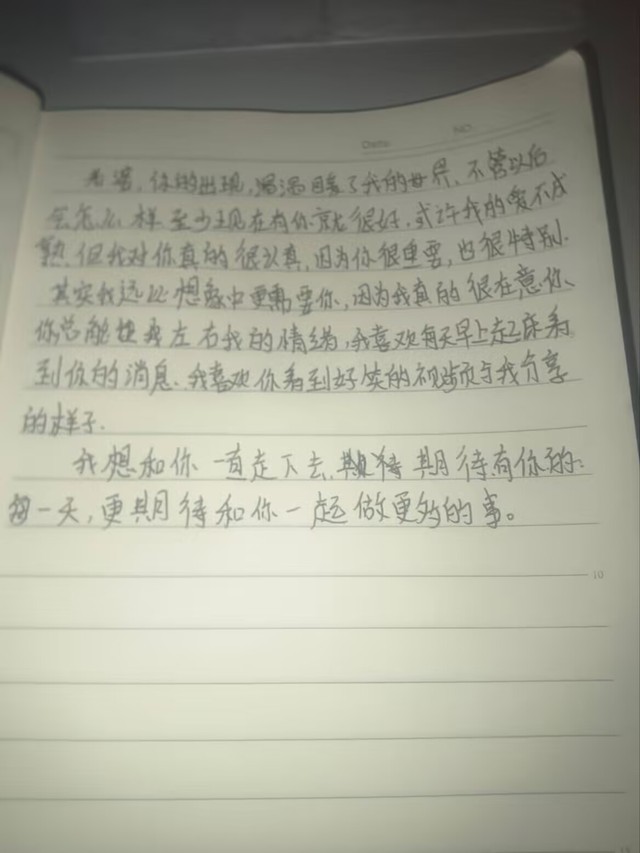 Date NO.
你的出现,温暖了我的世界、不管以后
会怎么样至少现在有你就很好,或许我的爱不成
熟,但我对你真的很认真,因为你很重要,也很特别.
其实我远比想象中更需要你,因为我真的很在意你、
你总能左右我的情绪,我喜欢每天早上起床看
到你的消息、我喜欢你看到好笑的视频与我分享
的样子.
我想和你一直走下去,期待有你的
每一天,更期待和你一起做更多的事。
10